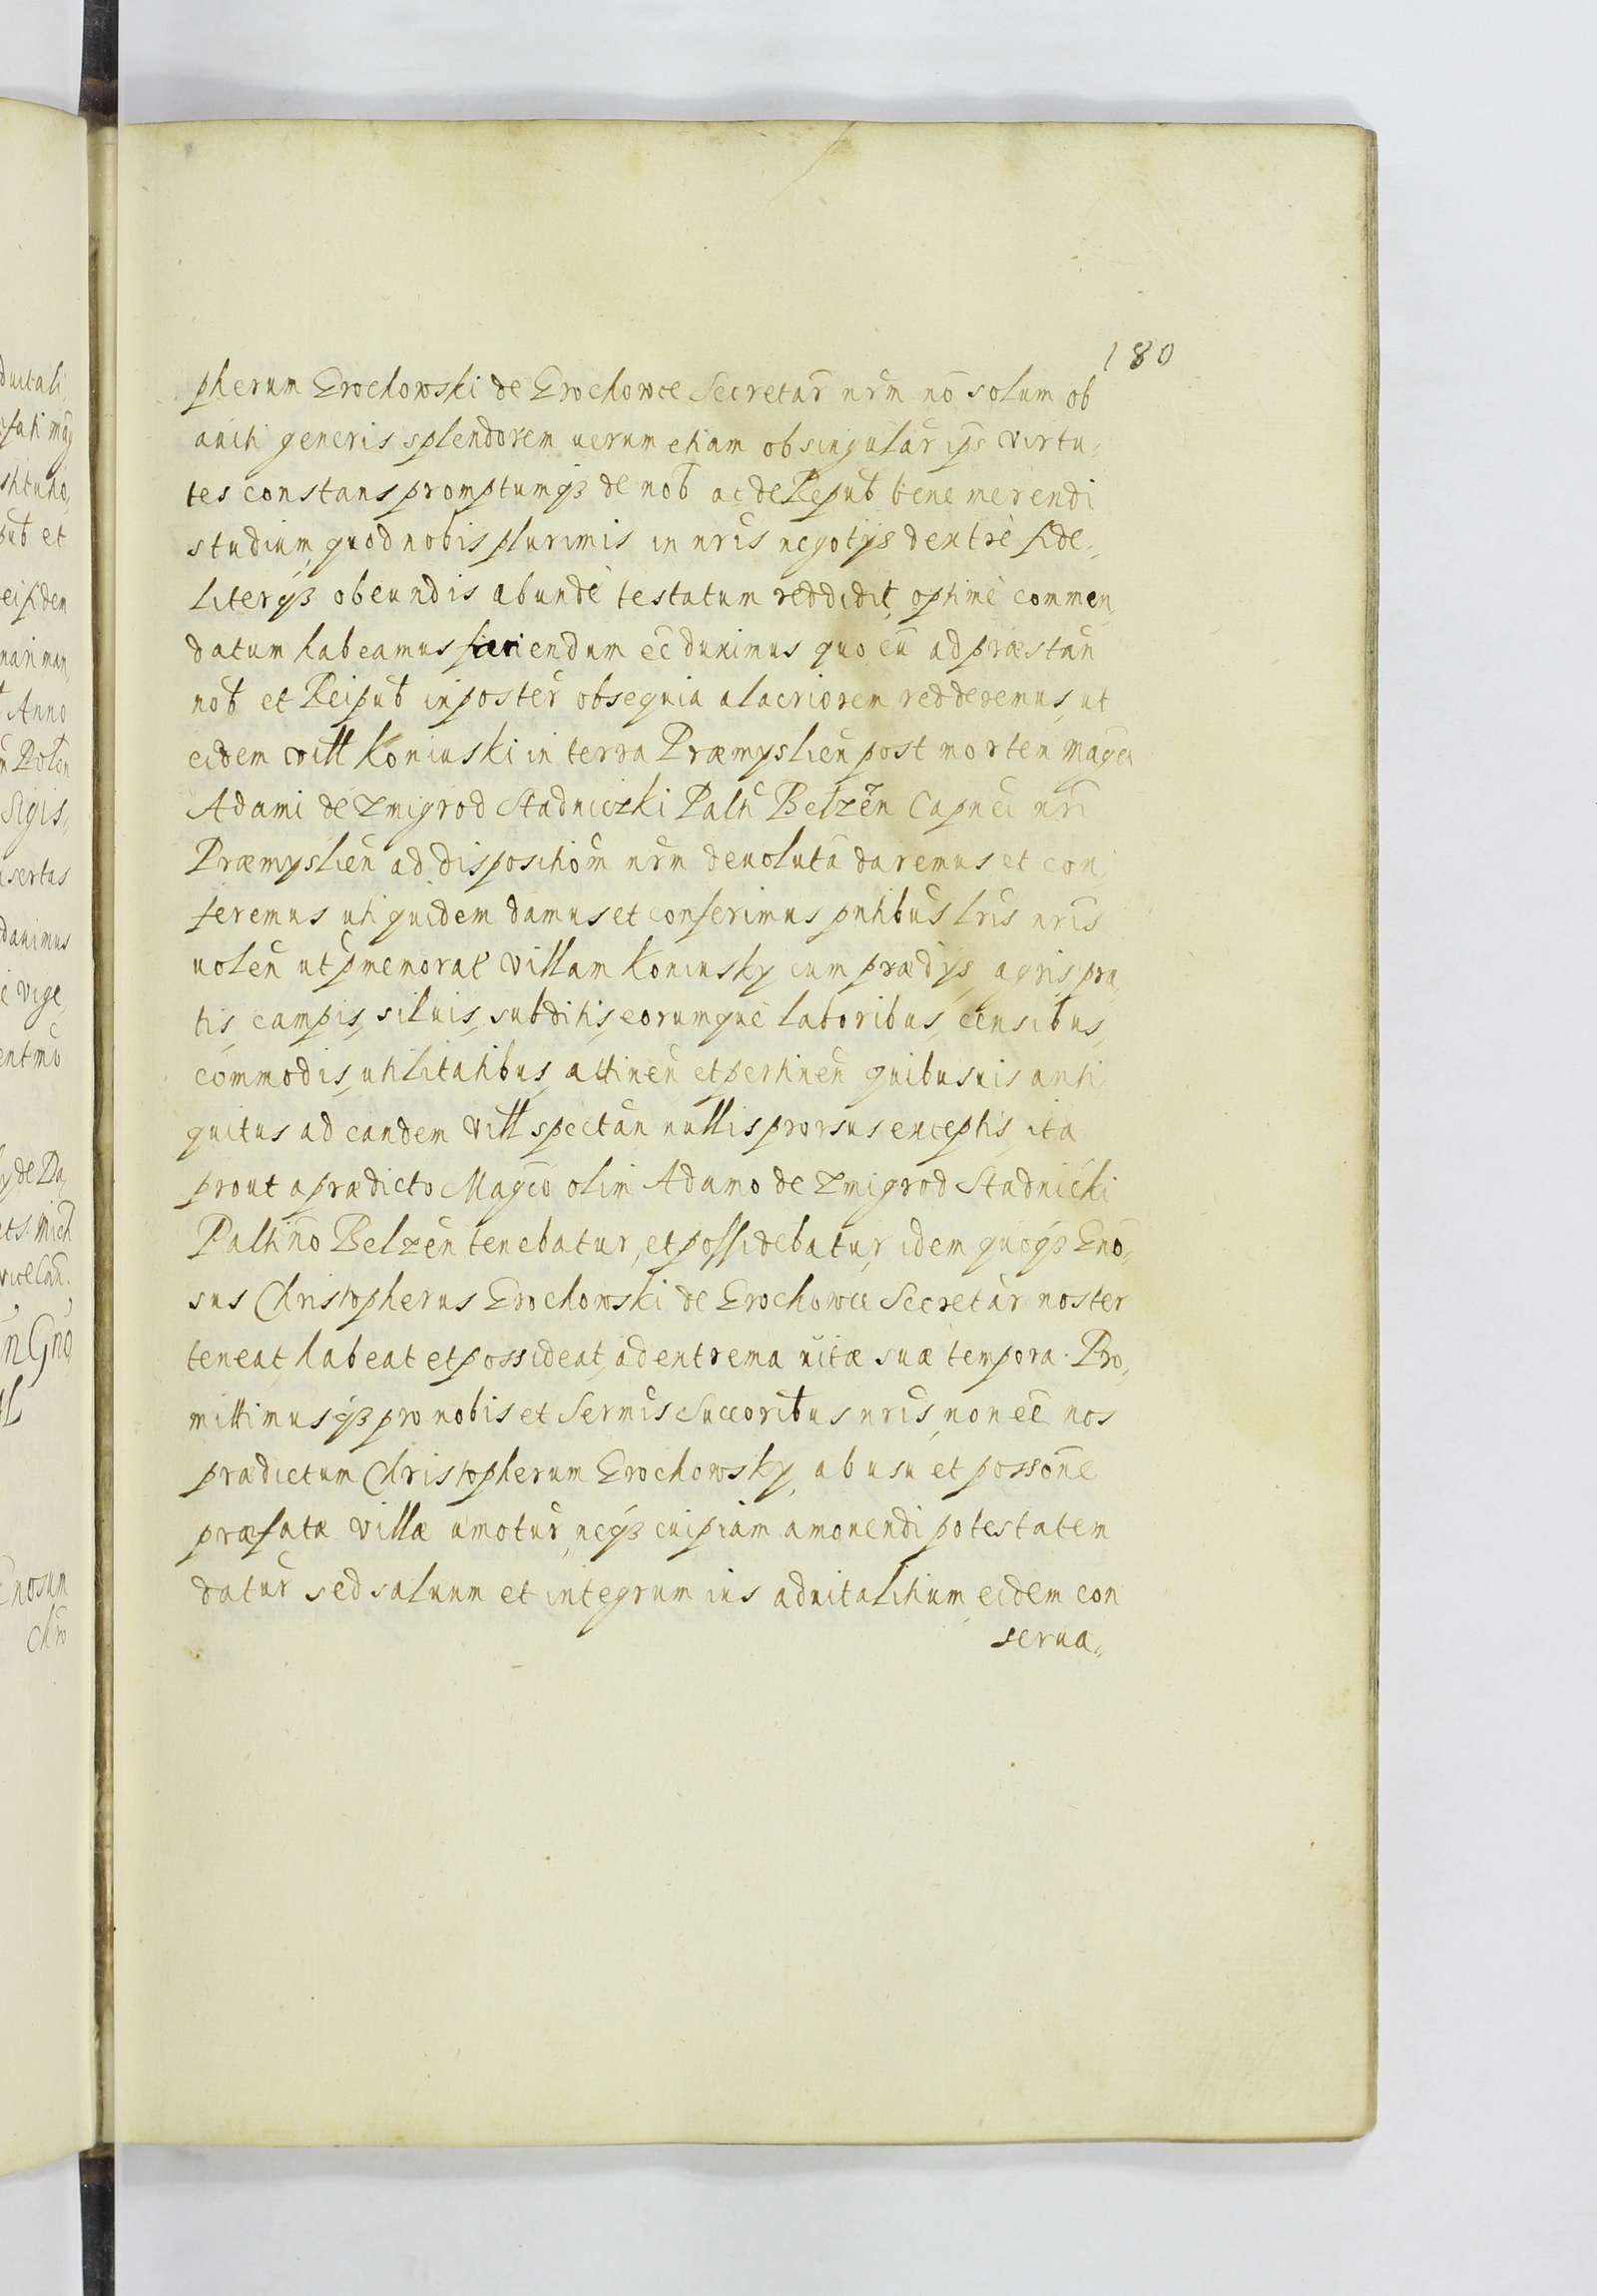 180
pherum Grochowski de Grochowce Secretar̃ nrm̃ nõ solum ob
auiti generis splendorem uerum etiam ob singular̃ ips virtu,,
tes constans promptumqз de nob̃ ac de Repub̃ bene merendi
studium, quod nobis plurimis in nris negotijs dextrè fide,,
literqз obeundis abundè testatum reddidit, optimè commen,
datum habeamus faciendum eẽ duximus quo eũ ad præstañ
nob̃ et Reipub̃ in poster̃ obsequia alacriorem redderemus, ut
eidem vill Koniuski in terra Præmyslieñ post mortem Magci
Adami de Zmigrod Stadniczki Palñi Belzeñ Capnei nri
Præmyslieñ ad dispositiom̃ nrm̃ deuolutã daremus et con,
feremus uti quidem damus et conferimus pntibus lris nris
uoleñ ut pmemorat̃ villam Koniusky cum prædijs, agris, pra,
tis, campis, siluis, subditis, eorumque laboribus, censibus,
commodis, utilitatibus, attineñ et pertineñ quibusuis anti,
quitus ad eandem vill spectañ nullis prorsus exceptis, ita
prout a prædicto Magco olim Adamo de Zmigrod Stadnicki
Paltiño Belzeñ tenebatur, et possidebatur, idem quoqз Gño,,
sus Christopherus Grochowski de Grochowce Secretar̃ noster
teneat, habeat et possideat, ad extrema uitæ suæ tempora. Pro,,
mittimusqз pro nobis et Sermis Succoribus nris, non eẽ nos
prædictum Christopherum Grochowsky, ab usu et possoñe
præfatæ villæ amotur̃, neqз cuipiam amouendi potestatem
datur̃ sed saluum et integrum ius aduitalitium, eidem con
serua,,